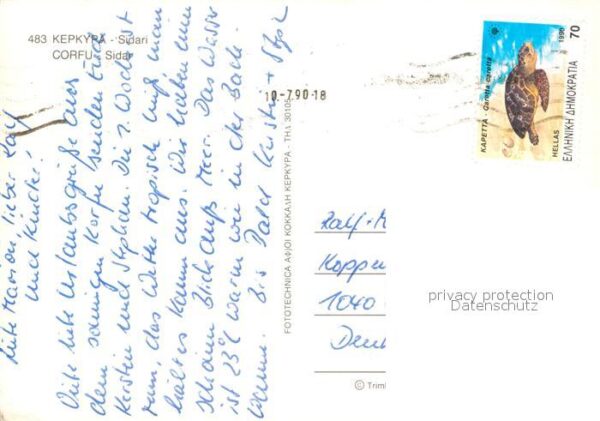 483 ΚΕΡΚΥΡΑ - Sidari
CORFU - Sidari
Liebe Marion, lieber Ralf
und Kinder!
Viele liebe Urlaubsgrüße aus
dem sonnigen Korfu senden Euch
Kerstin und Stephan. Die 2. Woche ist
rum, das Wetter tropisch, muß man
hält es kaum aus. Wir haben einen
schönen Blick aufs Meer. Das Wasser
ist 23°C warm wie in der Bade-
wanne. Bis Kerstin + 
10-7.90-18
ΦΩΤΟTECHNICA ΑΦΟΙ ΚΟΚΚΑΛΗ ΚΕΡΚΥΡΑ - ΤΗΛ. 30105
70
1990
ΚΑΡΕΤΤΑ - Caretta caretta
HELLAS
ΕΛΛΗΝΙΚΗ ΔΗΜΟΚΡΑΤΙΑ
Ralf + M
Koppe
1040
Deut
privacy protection
Datenschutz
© Trim